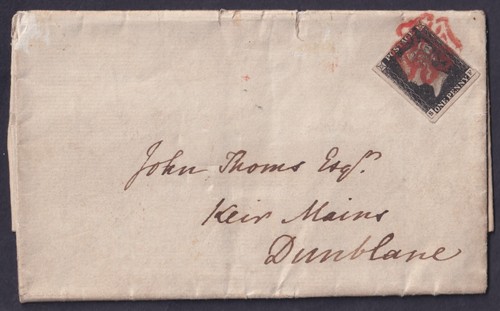 POSTAGE
ONE PENNY
John Thoms Esqr.
Keir Mains
Dunblane